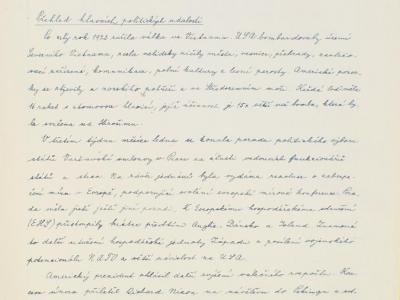 Přehled hlavních politických událostí
Po celý rok 1972 zuřila válka ve Vietnamu. USA bombardovaly území
Severního Vietnamu, nesla nelidsky ničily města, vesnice, přehrady,
zařízení, komunikace, polní kultury a lesní porosty. Americké
se objevily u norského pobřeží a ve Středozemním moři. Každá loď měla
16 raket s atomovou hlavicí, jejíž účinnost je 15x větší než bomba, která byla
svržena na Hirošimu.
V třetím týdnu měsíce ledna se konala porada politického výboru
států Varšavské smlouvy v Praze za účasti vedoucích funkcionářů
států a stran. Na závěr jednání byla vydána rezoluce o zabezpe-
čení míru v Evropě, podporující svolání evropské mírové konference.
měla ještě jeden Evropskému hospodářskému sdružení
(EHS) přistoupily krátce předtím Anglie, Dánsko a Irsko. Znamená
to další utužení hospodářské jednoty Západu a posílení vojenského
potenciálu NATO a větší závislost na USA.
Americký president ohlásil další zvýšení válečného rozpočtu. Kon-
cem února přiletěl Richard Nixon na návštěvu do Pekingu a